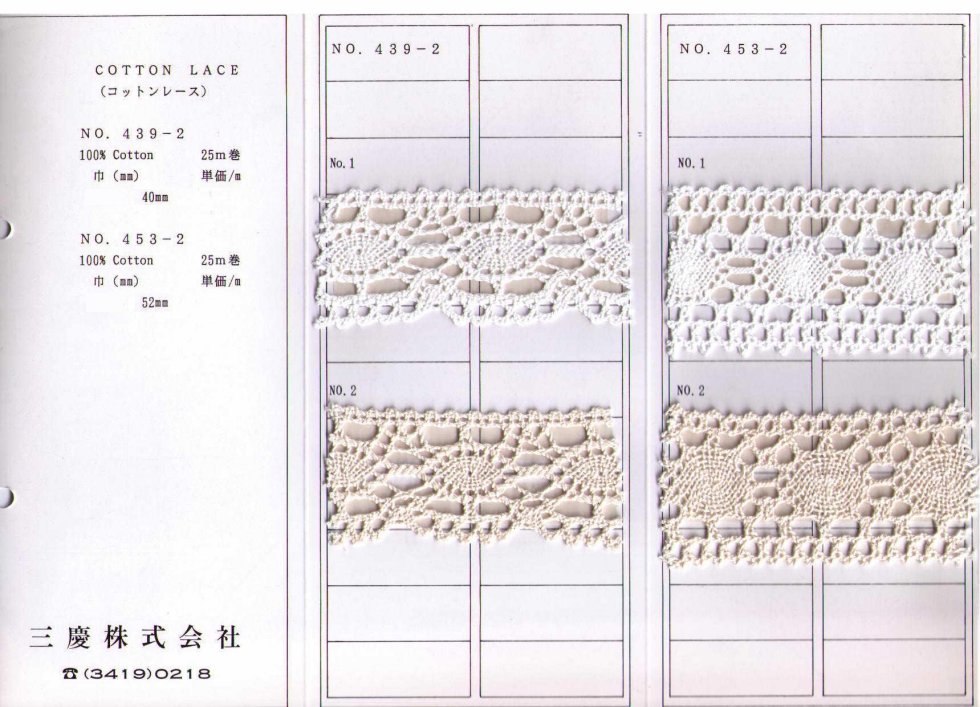 COTTON LACE
(コットンレース)
NO. 439-2
100% Cotton 25m巻
巾(mm) 単価/m
40mm
NO. 453-2
100% Cotton 25m巻
巾(mm) 単価/m
52mm
三慶株式会社
☎(3419)0218
NO. 439-2
No.1
NO.2
NO. 453-2
NO.1
NO.2